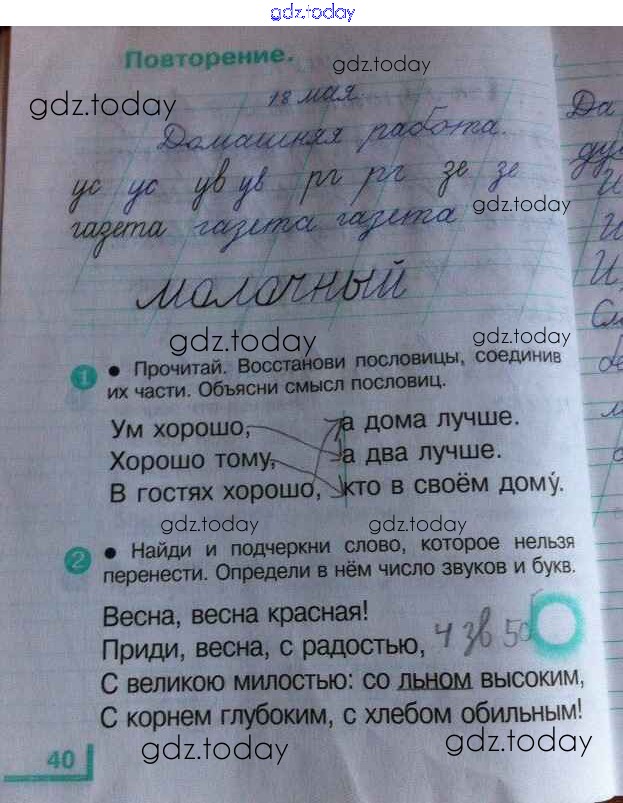 gdz.today
Повторение.
gdz.today
18 мая
gdz.today
Домашняя работа.
ус ус ув ув рг рг зе зе
gdz.today
газета газета газета
молочный
gdz.today
gdz.today
1 • Прочитай. Восстанови пословицы, соединив
их части. Объясни смысл пословиц.
Ум хорошо, а дома лучше.
Хорошо тому, а два лучше.
В гостях хорошо, кто в своём дому́.
gdz.today
gdz.today
2 • Найди и подчеркни слово, которое нельзя
перенести. Определи в нём число звуков и букв.
Весна, весна красная!
Приди, весна, с радостью, 4 зв 5 б
С великою милостью: со льном высоким,
С корнем глубоким, с хлебом обильным!
40
gdz.today
gdz.today
Да